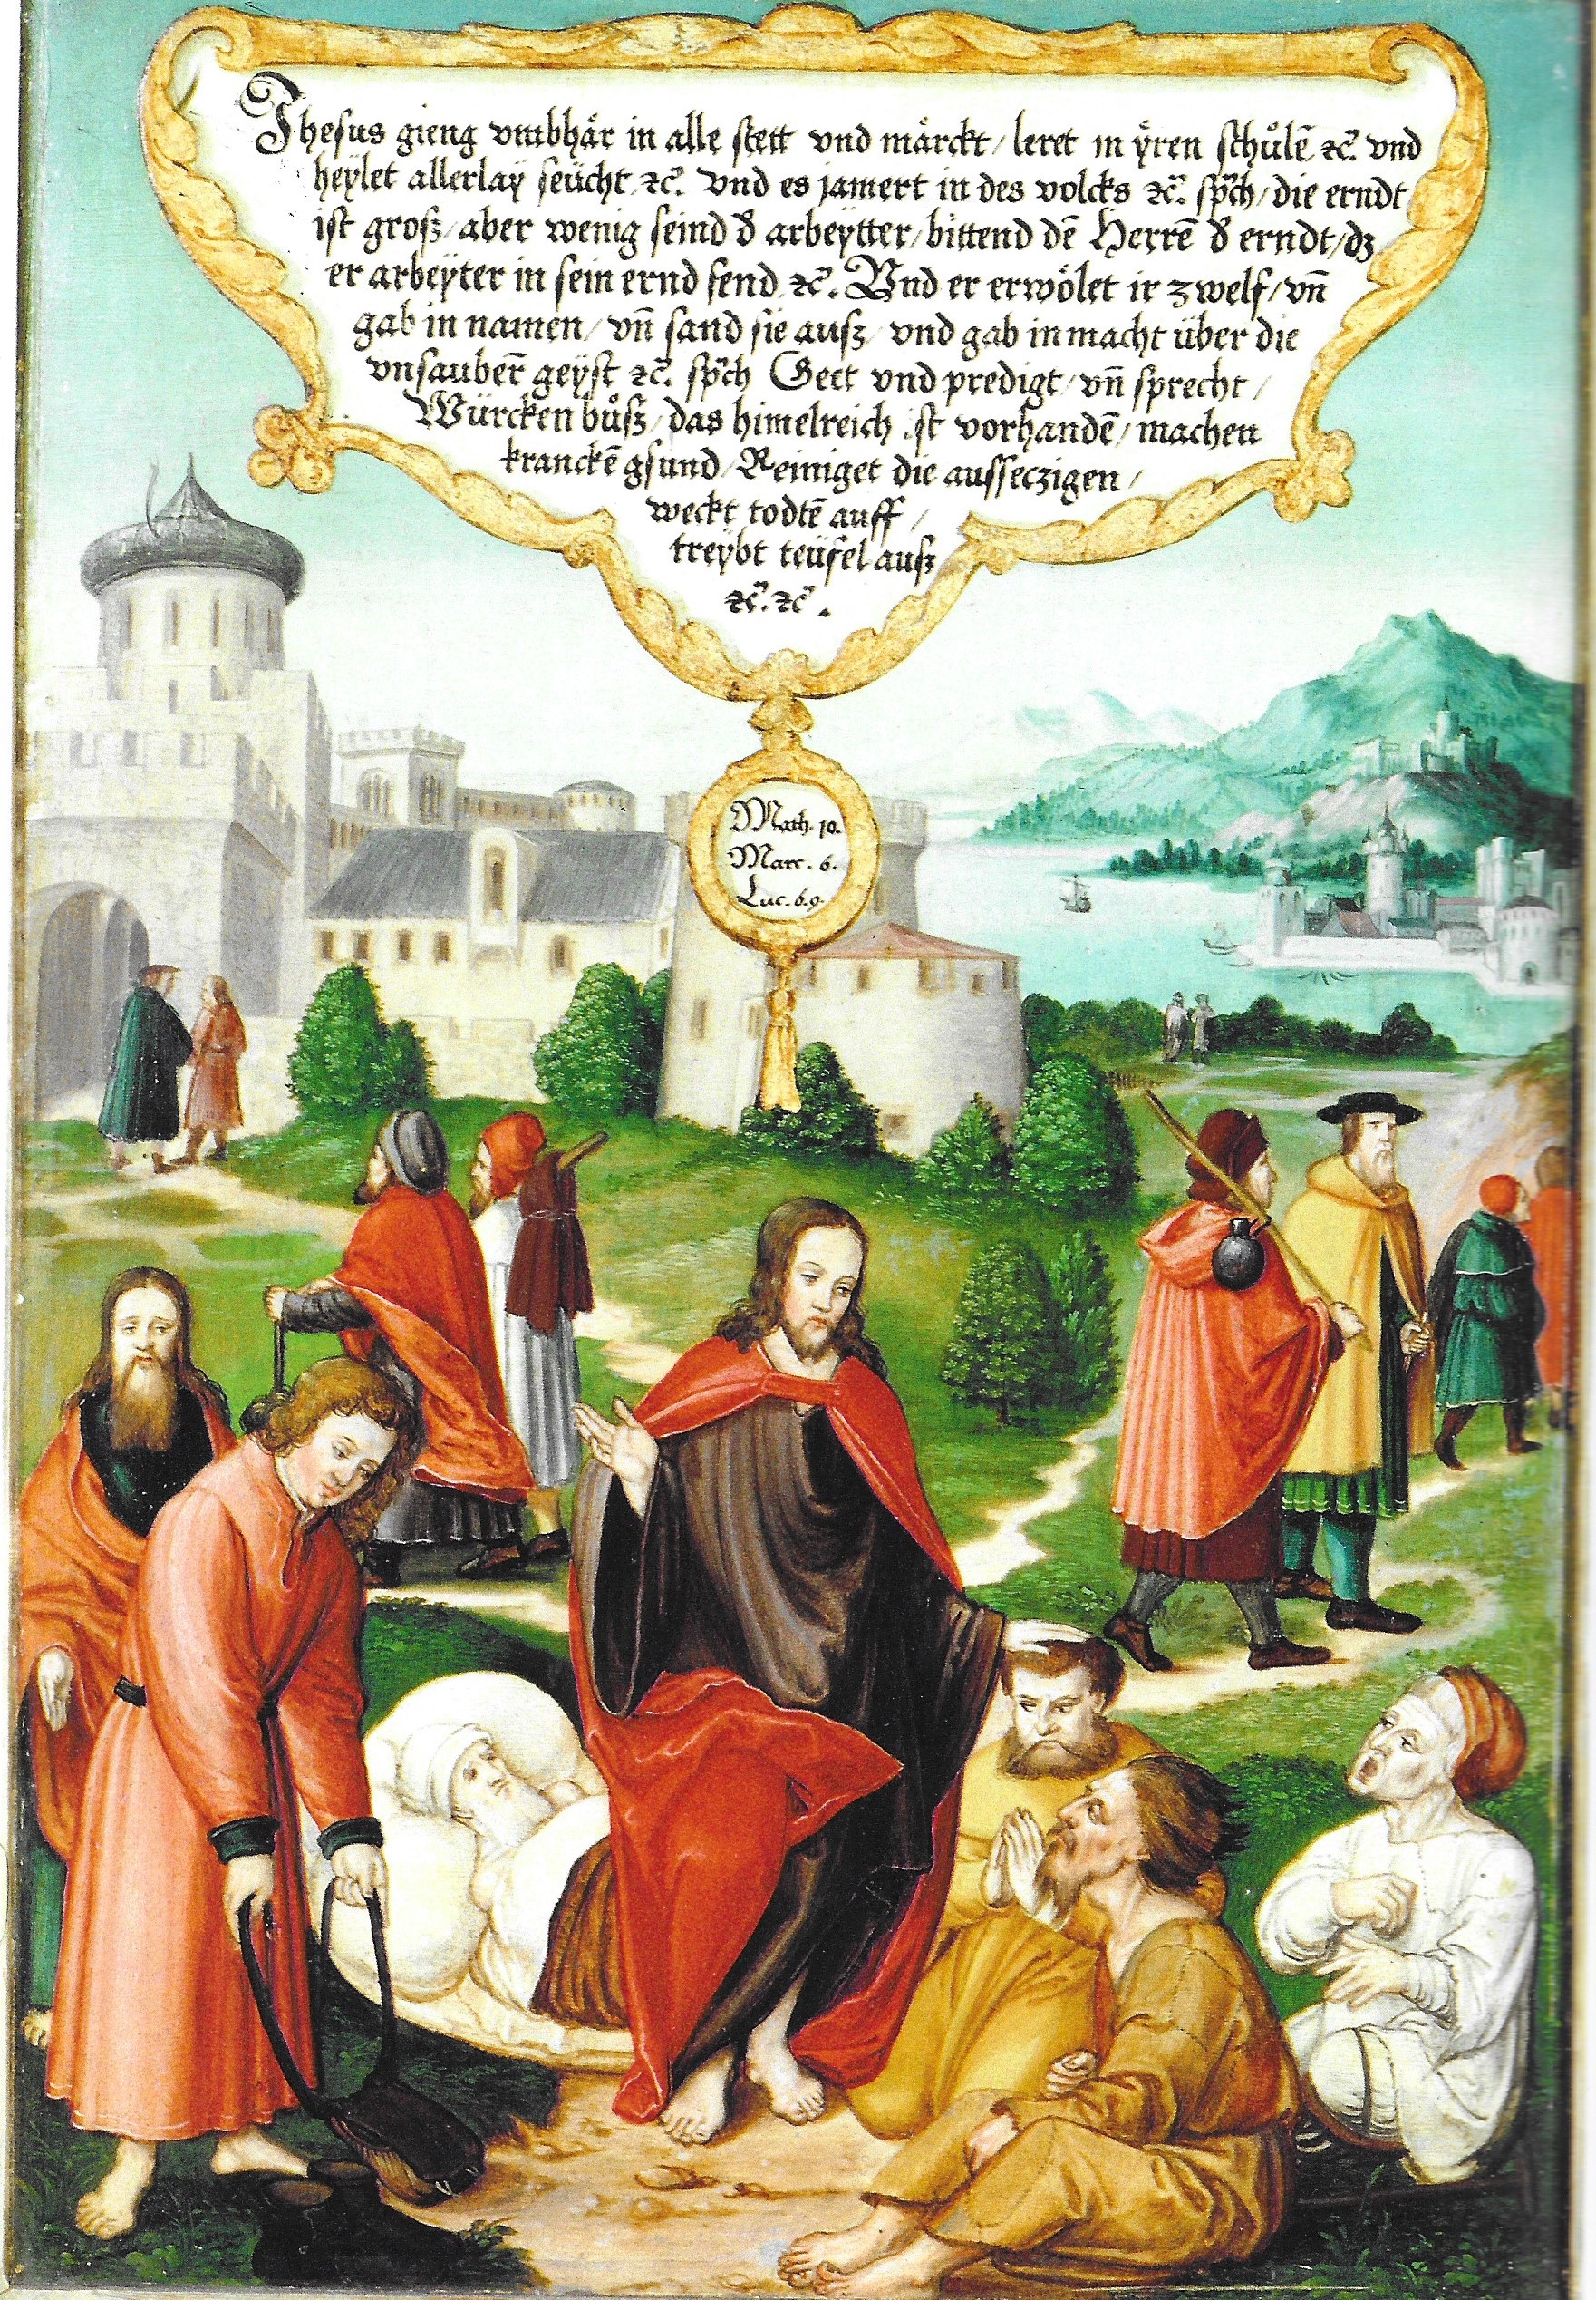 Jhesus gieng vmbhår in alle stett vnd mårckt / leret in ÿren schůlē ꝛc̄. vnd
heÿlet allerlaÿ seücht ꝛc̄. vnd es jamert in des volcks ꝛc̄. sp̄ch / die erndt
ist grosz / aber wenig seind d̄ arbeÿtter / bittend dē Herrē d̄ erndt / dz
er arbeÿter in sein ernd send ꝛc̄. Vnd er erwölet ir zwelf / vn̄
gab in namen / vn̄ sand sie ausz / vnd gab in macht über die
vnsauber̄ geÿst ꝛc̄. sp̄ch Gett vnd predigt / vn̄ sprecht /
Würcken bůsz / das himelreich ist vorhandē / machen
kranckē gsund / Reiniget die ausseczigen /
weckt todtē auff /
treÿbt teüfel ausz
ꝛc̄. ꝛc̄.
Math. 10.
Marc. 6.
Luc. 6. 9.